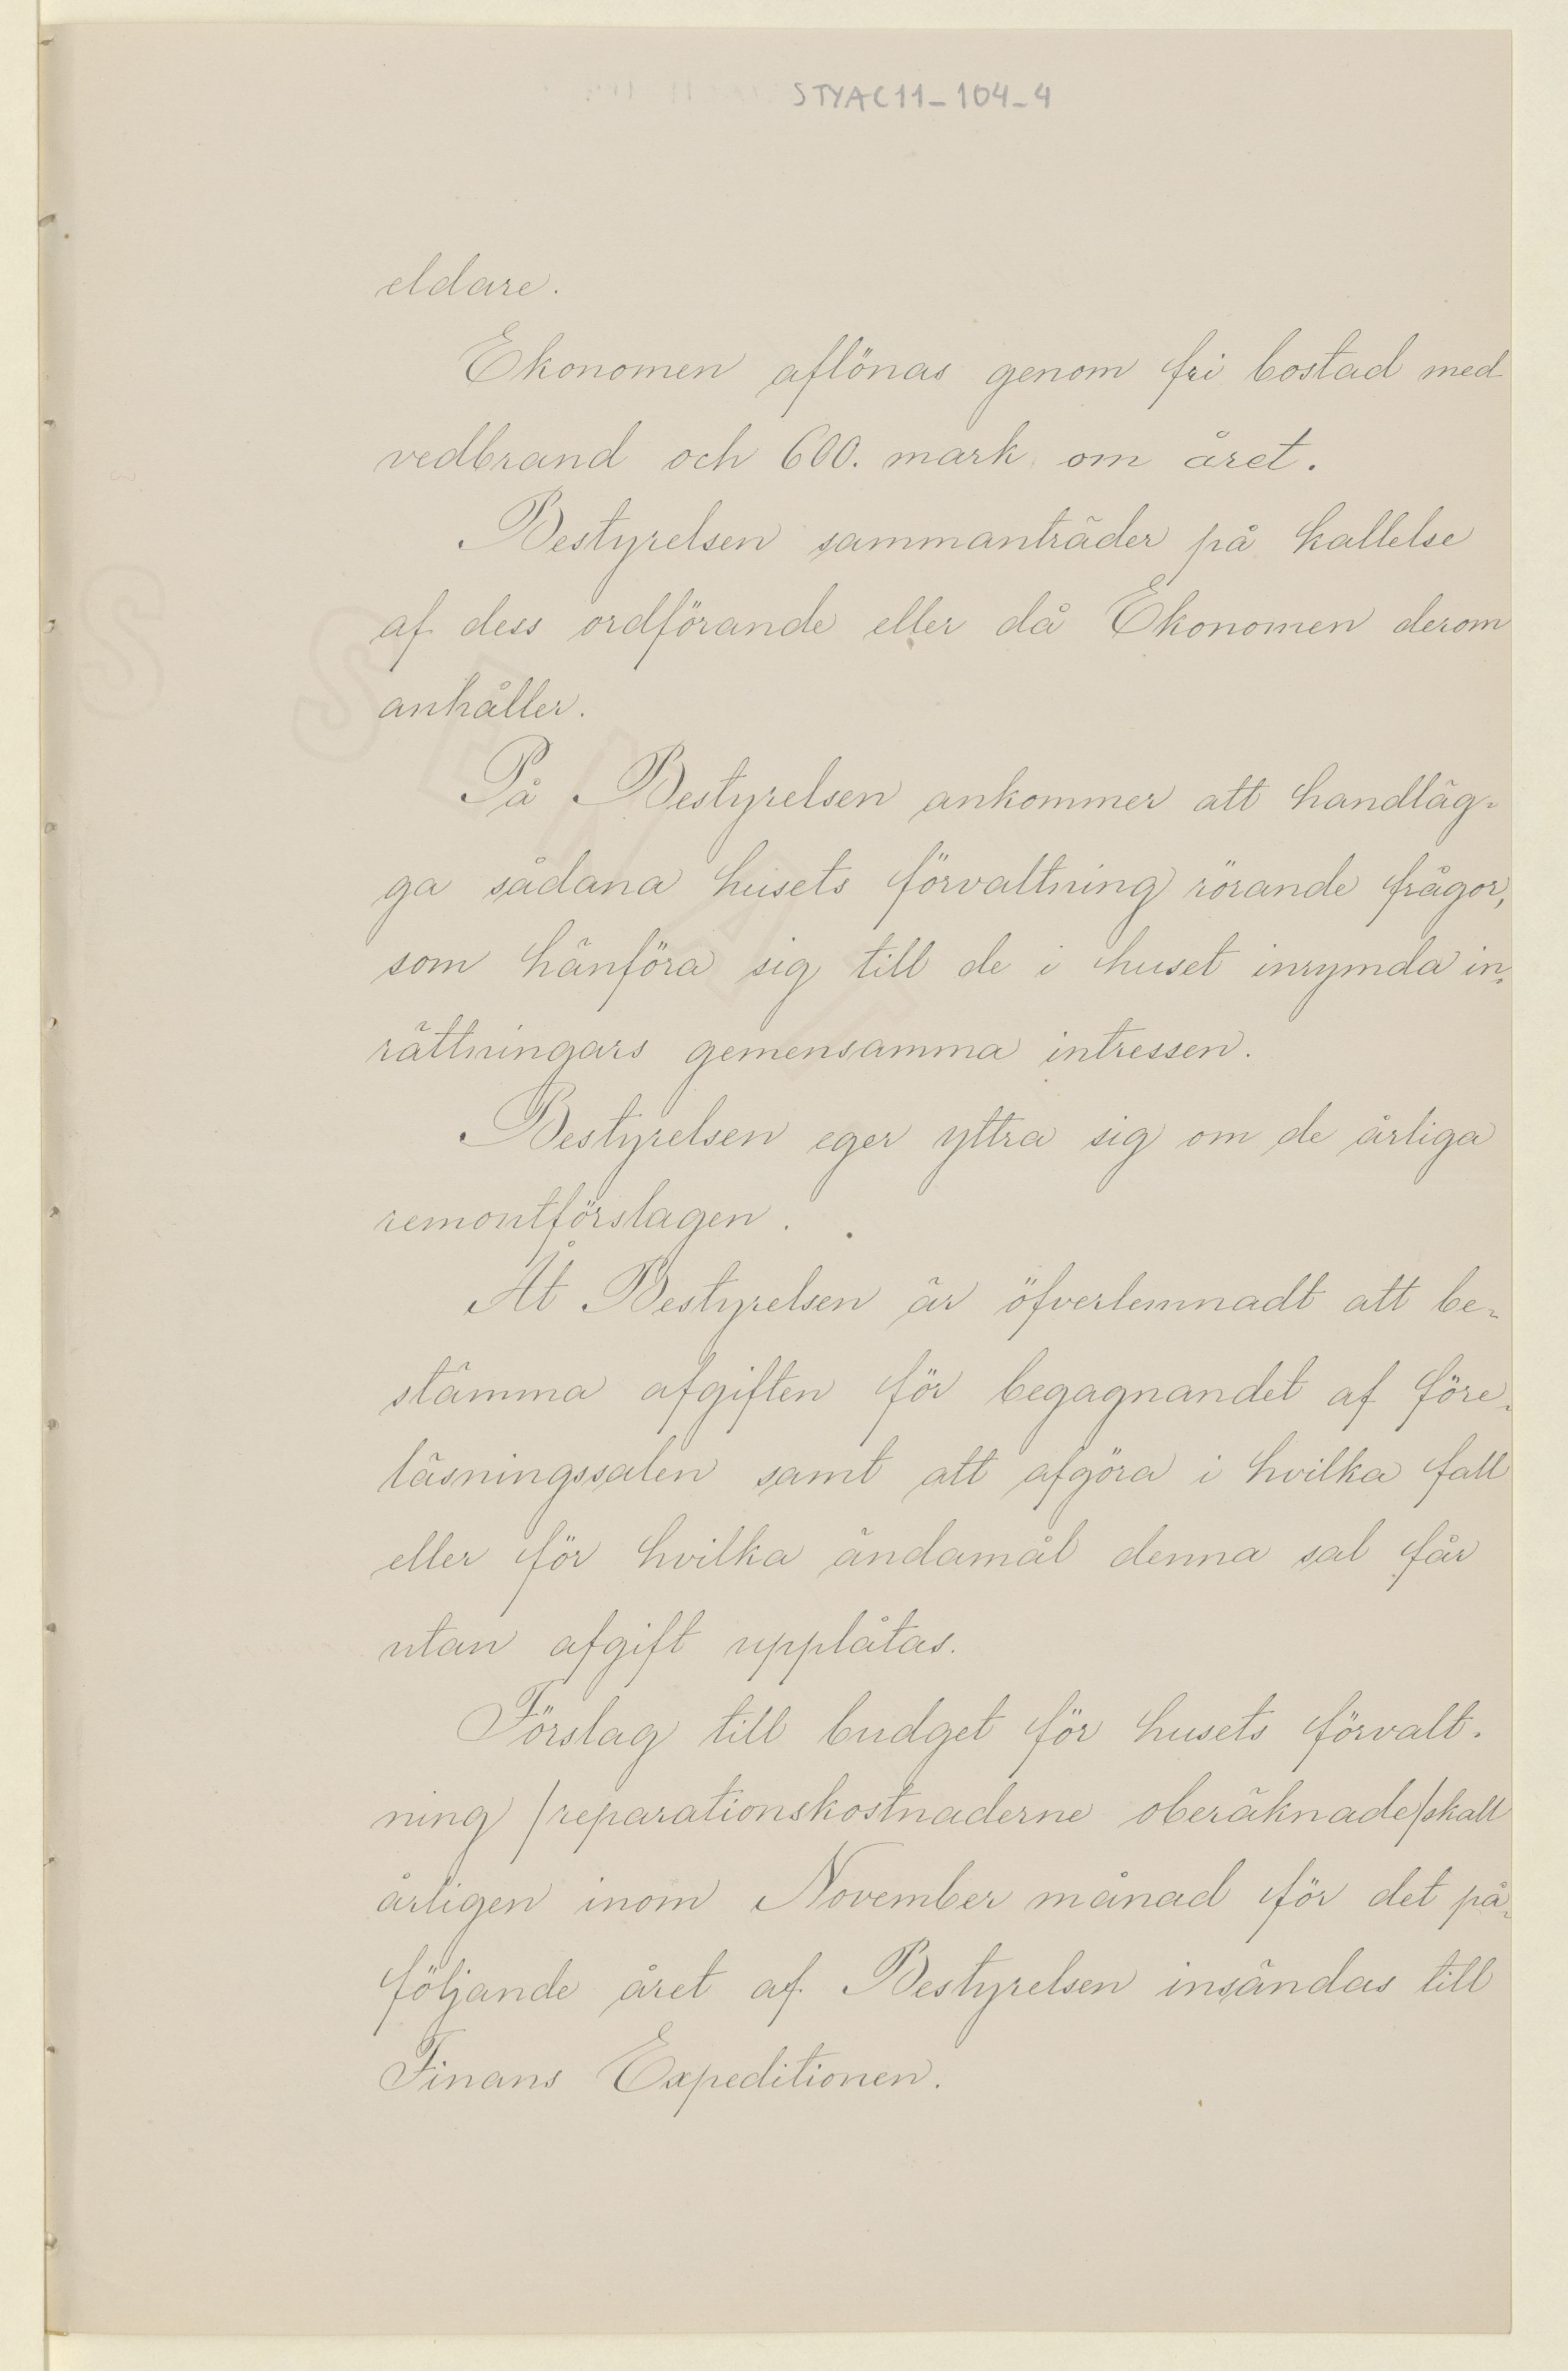 STYAC11-104-4
eldare.
Ekonomen aflönas genom fri bostad med
vedbrand och 600. mark om året.
Bestyrelsen sammanträder på kallelse
af dess ordförande eller då Ekonomen derom
anhåller.
På Bestyrelsen ankommer att handläg-
ga sådana husets förvaltning rörande frågor,
som hänföra sig till de i huset inrymda in-
rättningars gemensamma intressen.
Bestyrelsen eger yttra sig om de årliga
remontförslagen.
Åt Bestyrelsen är öfverlemnadt att be-
stämma afgiften för begagnandet af före-
läsningssalen samt att afgöra i hvilka fall
eller för hvilka ändamål denna sal får
utan afgift upplåtas.
Förslag till budget för husets förvalt-
ning /reparationskostnaderne oberäknade/ skall
årligen inom November månad för det på-
följande året af Bestyrelsen insändas till
Finans Expeditionen.